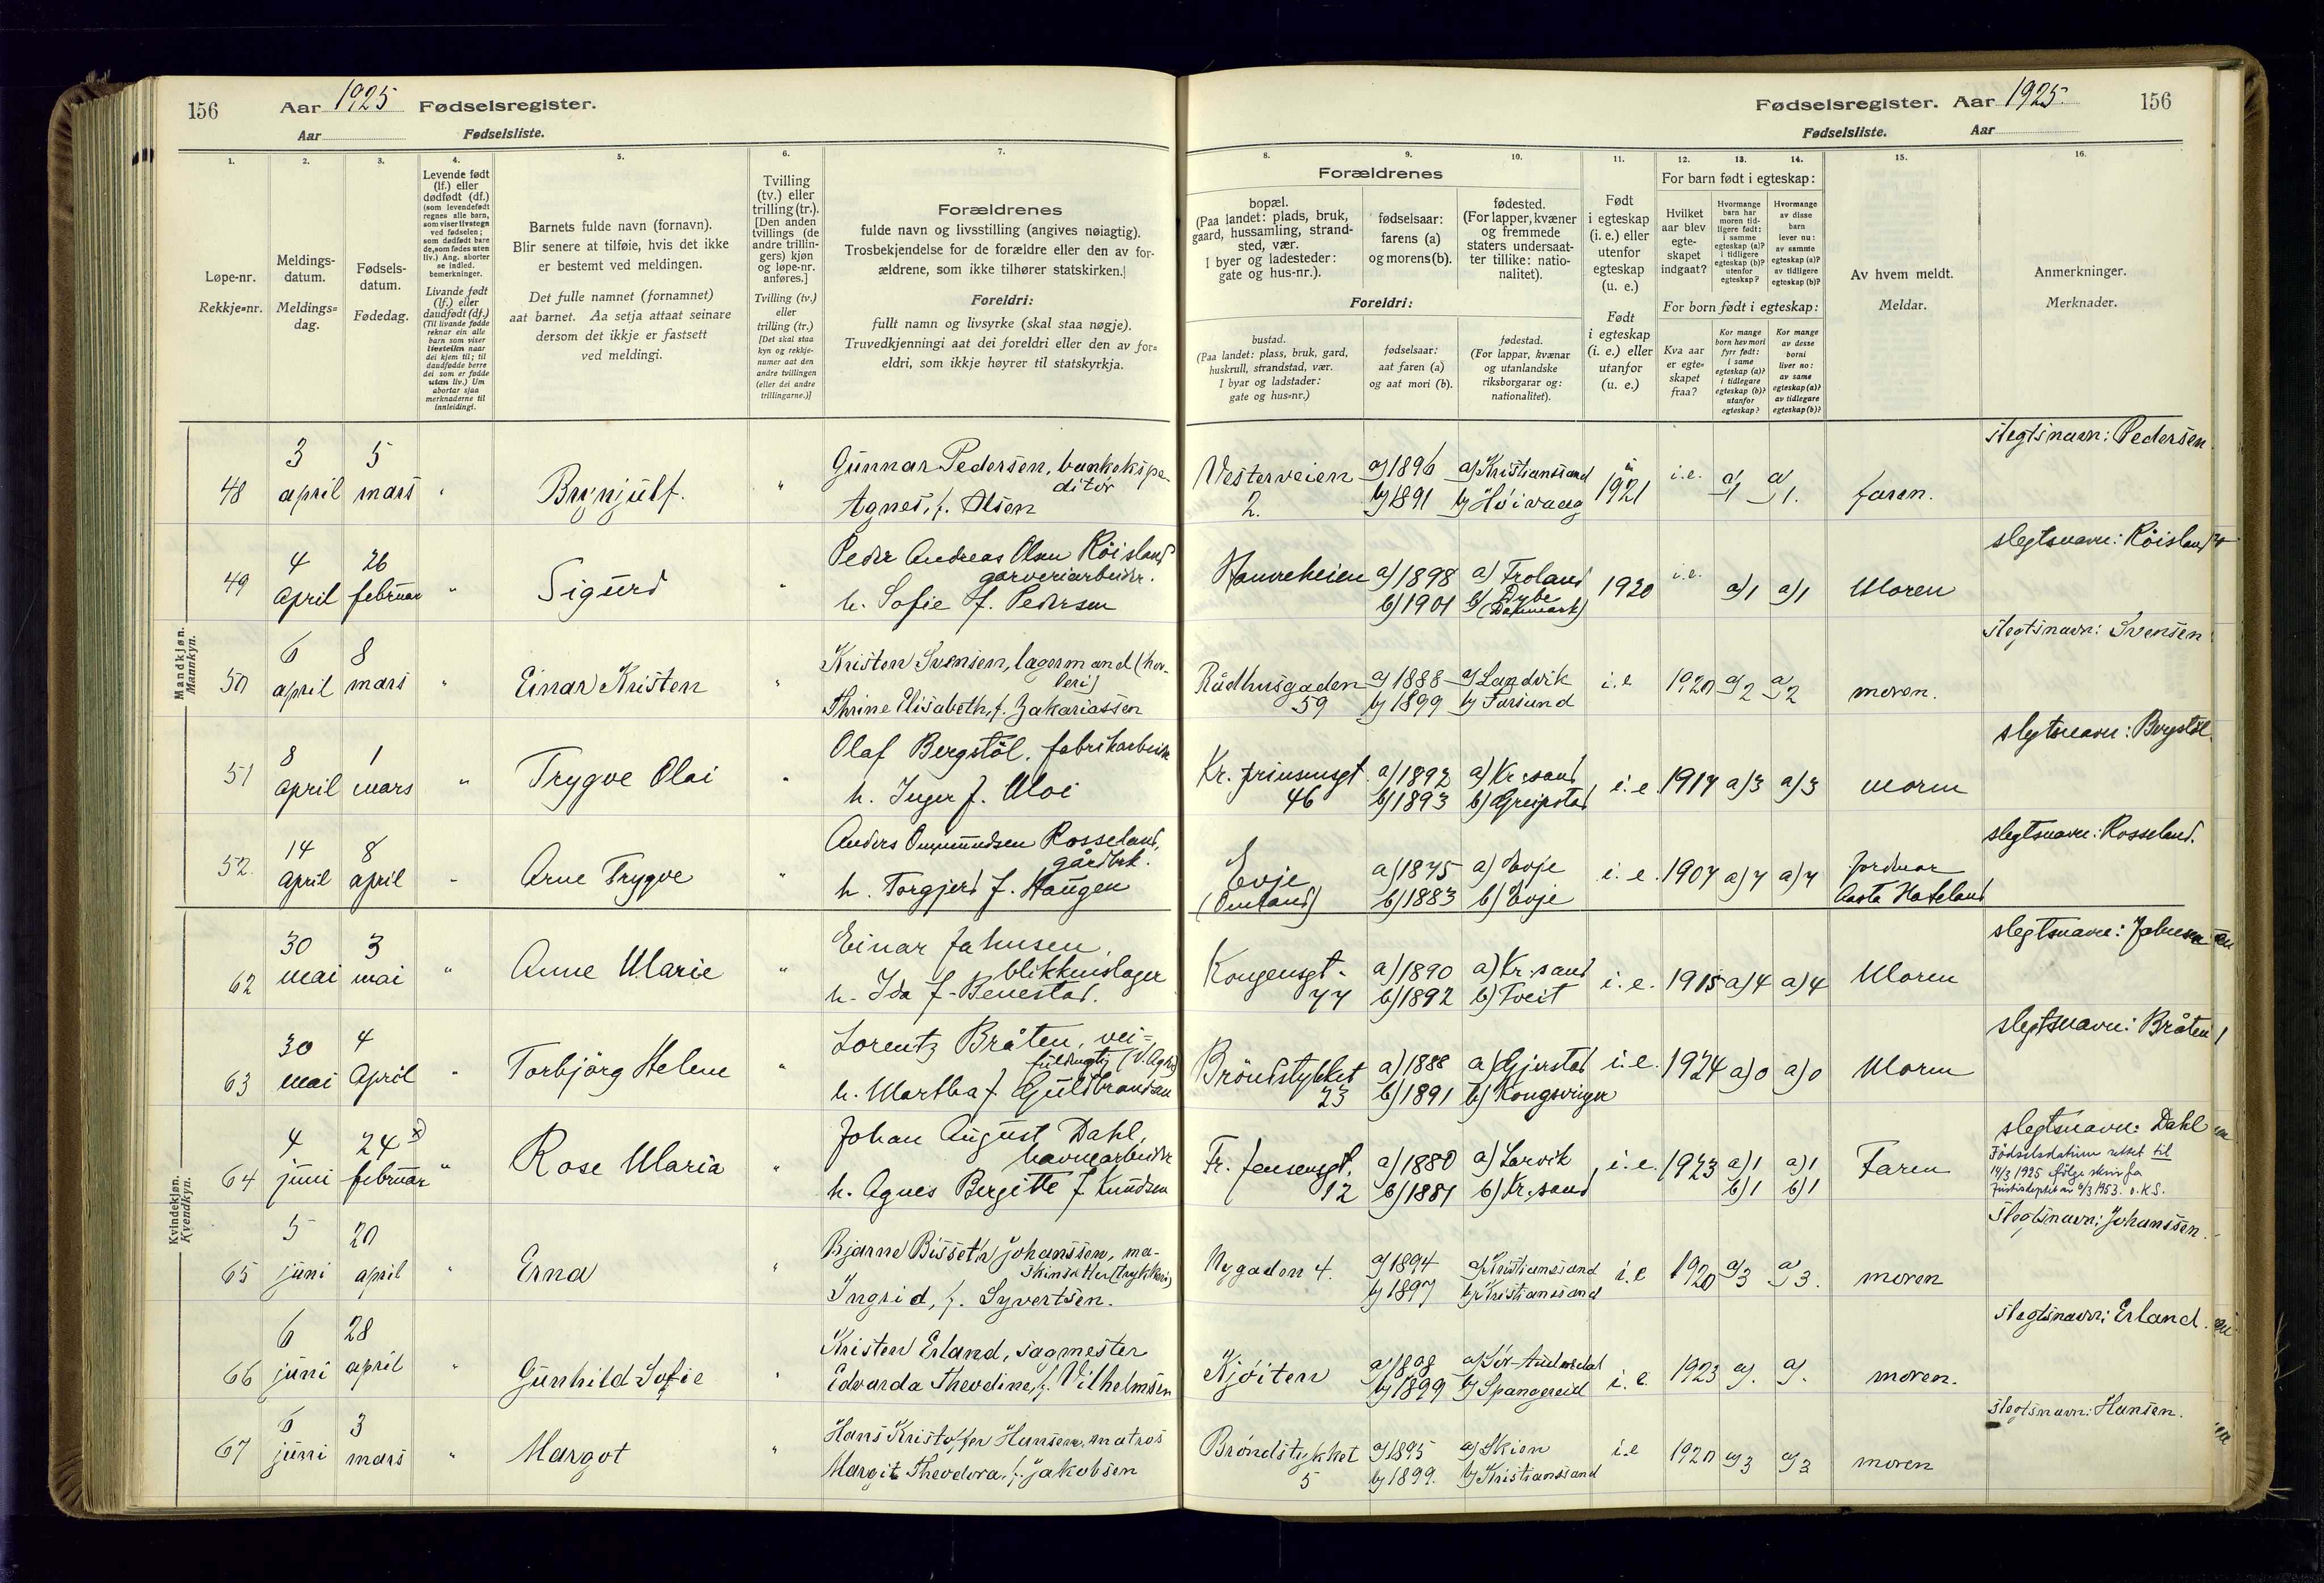 156 Aar 1925 Fødselsregister.
Aar Fødselsliste.
Fødselsregister. Aar 1925. 156
Fødselsliste. Aar
1. 2. 3. 4. 5. 6. 7.
Løpe-nr.
Rekkje=nr.
Meldings-
datum.
Meldings=
dag.
Fødsels-
datum.
Fødedag.
Levende født
(lf.) eller
dødfødt (df.)
(som levendefødt
regnes alle barn,
som viser livstegn
ved fødselen;
som dødfødt bare
de, som fødes uten
liv.) Ang. aborter
se indled.
bemerkninger.
Livande født
(lf.) eller
daudfødt (df.)
(Til livande fødde
reknar ein alle
barn som viser
livsteikn naar
dei kjem til; til
daudfødde berre
dei som er fødde
utan liv.) Um
abortar sjaa
merknaderne til
innleidingi.
Barnets fulde navn (fornavn).
Blir senere at tilføie, hvis det ikke
er bestemt ved meldingen.
Det fulle namnet (fornamnet)
aat barnet. Aa setja attaat seinare
dersom det ikkje er fastsett
ved meldingi.
Tvilling
(tv.) eller
trilling (tr.).
[Den anden
tvillings (de
andre trillin-
gers) kjøn
og løpe-nr.
anføres.]
Tvilling (tv.)
eller
trilling (tr.)
[Det skal staa
kyn og rekkje-
numer aat den
andre tvillingen
(eller dei andre
trillingarne.)]
Forældrenes
fulde navn og livsstilling (angives nøiagtig).
Trosbekjendelse for de forældre eller den av for-
ældrene, som ikke tilhører statskirken.
Foreldri:
fullt namn og livsyrke (skal staa nøgje).
Truvedkjenningi aat dei foreldri eller den av for=
eldri, som ikkje høyrer til statskyrkja.
8. 9. 10. 11. 12. 13. 14. 15. 16.
Forældrenes
bopæl.
(Paa landet: plads, bruk,
gaard, hussamling, strand-
sted, vær.
I byer og ladesteder:
gate og hus-nr.).
fødselsaar:
farens (a)
og morens (b).
fødested.
(For lapper, kvæner
og fremmede
staters undersaat-
ter tillike: natio-
nalitet).
Foreldri:
bustad.
(Paa landet: plass, bruk, gard,
huskrull, strandstad, vær.
I byar og ladstader:
gate og hus=nr.)
fødselsaar:
aat faren (a)
og aat mori (b).
fødestad.
(For lappar, kvænar
og utanlandske
riksborgarar og:
nationalitet).
Født
i egteskap
(i. e.) eller
utenfor
egteskap
(u. e.)
Født
i egteskap
(i. e.) eller
utanfor
(u. e.)
For barn født i egteskap:
Hvilket
aar blev
egte-
skapet
indgaat?
Hvormange
barn har
moren tid-
ligere født:
i samme
egteskap (a)?
i tidligere
egteskap (b)?
utenfor
egteskap?
Hvormange
av disse
barn
lever nu:
av samme
egteskap (a)?
av tidligere
egteskap (b)?
For born født i egteskap:
Kva aar
er egte=
skapet
fraa?
Kor mange
born hev mori
fyrr født:
i same
egteskap (a)?
i tidlegare
egteskap (b)?
utanfor
egteskap?
Kor mange
av desse
borni
liver no:
av same
egteskap (a)?
av tidlegare
egteskap (b)?
Av hvem meldt.
Meldar.
Anmerkninger.
Merknader.
Mandkjøn.
Mannkyn.
48 3 april 5 mars " Brynjulf. " Gunnar Pedersen, bankekspe-
ditør
Agnes, f. Olsen
Vesterveien 2. a) 1896 b) 1891 a) Kristianssand b) Høivaag 1921 i.e. a) 1 a) 1. faren. slegtsnavn: Pedersen.
49 4 april 26 februar " Sigurd " Peder Andreas Olsen Röisland
garveriarbeider.
h. Sofie f. Pedersen
Hanreheien a) 1898 b) 1901 a) Froland b) Dybe (Danmark) 1920 i.e. a) 1 a) 1 Moren slegtsnavn: Röisland
50 6 april 8 mars " Einar Kristen " Kristen Svensen, lagermand
Thrine Elisabeth, f. Zakariassen
Rådhusgaden 59 a) 1888 b) 1899 a) Landvik b) Farsund i.e 1920 a) 2 a) 2 moren. slegtsnavn: Svensen
51 8 april 1 mars " Trygve Olai " Olaf Bergstöl, fabrikarbeider
h. Inger f. Moi
Kr. prinsensgt. 46 a) 1892 b) 1893 a) Kr.sand b) Greipstad i.e. 1917 a) 3 a) 3 moren slegtsnavn: Bergstöl.
52. 14 april 8 april " Arne Trygve " Anders Ommundsen Rosseland,
gårdbr.
h. Torgjerd f. Haugen
Evje (Omland) a) 1875 b) 1883 a) Evje b) Evje i. e. 1907 a) 7 a) 7 Jordmor Aasta Hodeland slegtsnavn: Rosseland.
Kvindekjøn.
Kvendkyn.
62 30 mai 3 mai " Anne Marie " Einar Johnsen,
blikkenslager
h. Ida f. Benestad.
Kongensgt. 77 a) 1890 b) 1892 a) Kr.sand b) Tveit i. e. 1915 a) 4 a) 4 Moren slegtsnavn: Johnsen
63 30 mai 4 April " Torbjörg Helene " Lorentz Bråten, vei=
fuldmegtig (V. Agder)
h. Martha f. Guldbrandsen
Bröndstykket 23 a) 1888 b) 1891 a) Gjerstad b) Kongsvinger i. e. 1924 a) 0 a) 0 Moren slegtsnavn: Bråten
64 4 juni 24 x) februar " Rose Maria " Johan August Dahl,
havnearbeider
h. Agnes Bergitte f Knudsen
Fr. Jensensgt. 12 a) 1880 b) 1881 a) Larvik b) Kr.sand i. e. 1923 a) 1 b) 1 a) 1 b) 1 Faren slegtsnavn: Dahl
Födselsdatum rettet til
14/3 1925 ifölge skriv fra
Justisdeptet av 6/3 1953. o.K.S.
65 5 juni 20 april " Erna " Bjarne Bisseth Johanssen, ma-
skinsetter (trykkeri)
Ingrid, f. Syvertsen.
Nygaden 4. a) 1894 b) 1897 a) Kristianssand b) Kristianssand i.e 1920 a) 3 a) 3. moren slegtsnavn: Johanssen.
66 6 juni 28 april " Gunhild Sofie " Kristen Erland, sagmester
Edvarda Thevdine, f. Vilhelmsen
Kjøiten a) 1898 b) 1899 a) Sør-Audnedal b) Spangereid i. e. 1923 a). a). moren. slegtsnavn: Erland.
67 6 juni 3 mars " Margot " Hans Kristoffer Hansen, matros
Margit Theodora, f. Jakobsen
Brøndstykket 5 a) 1895 b) 1899. a) Skien b) Kristianssand i.e 1920 a) 3 a) 3 moren slegtsnavn: Hansen.